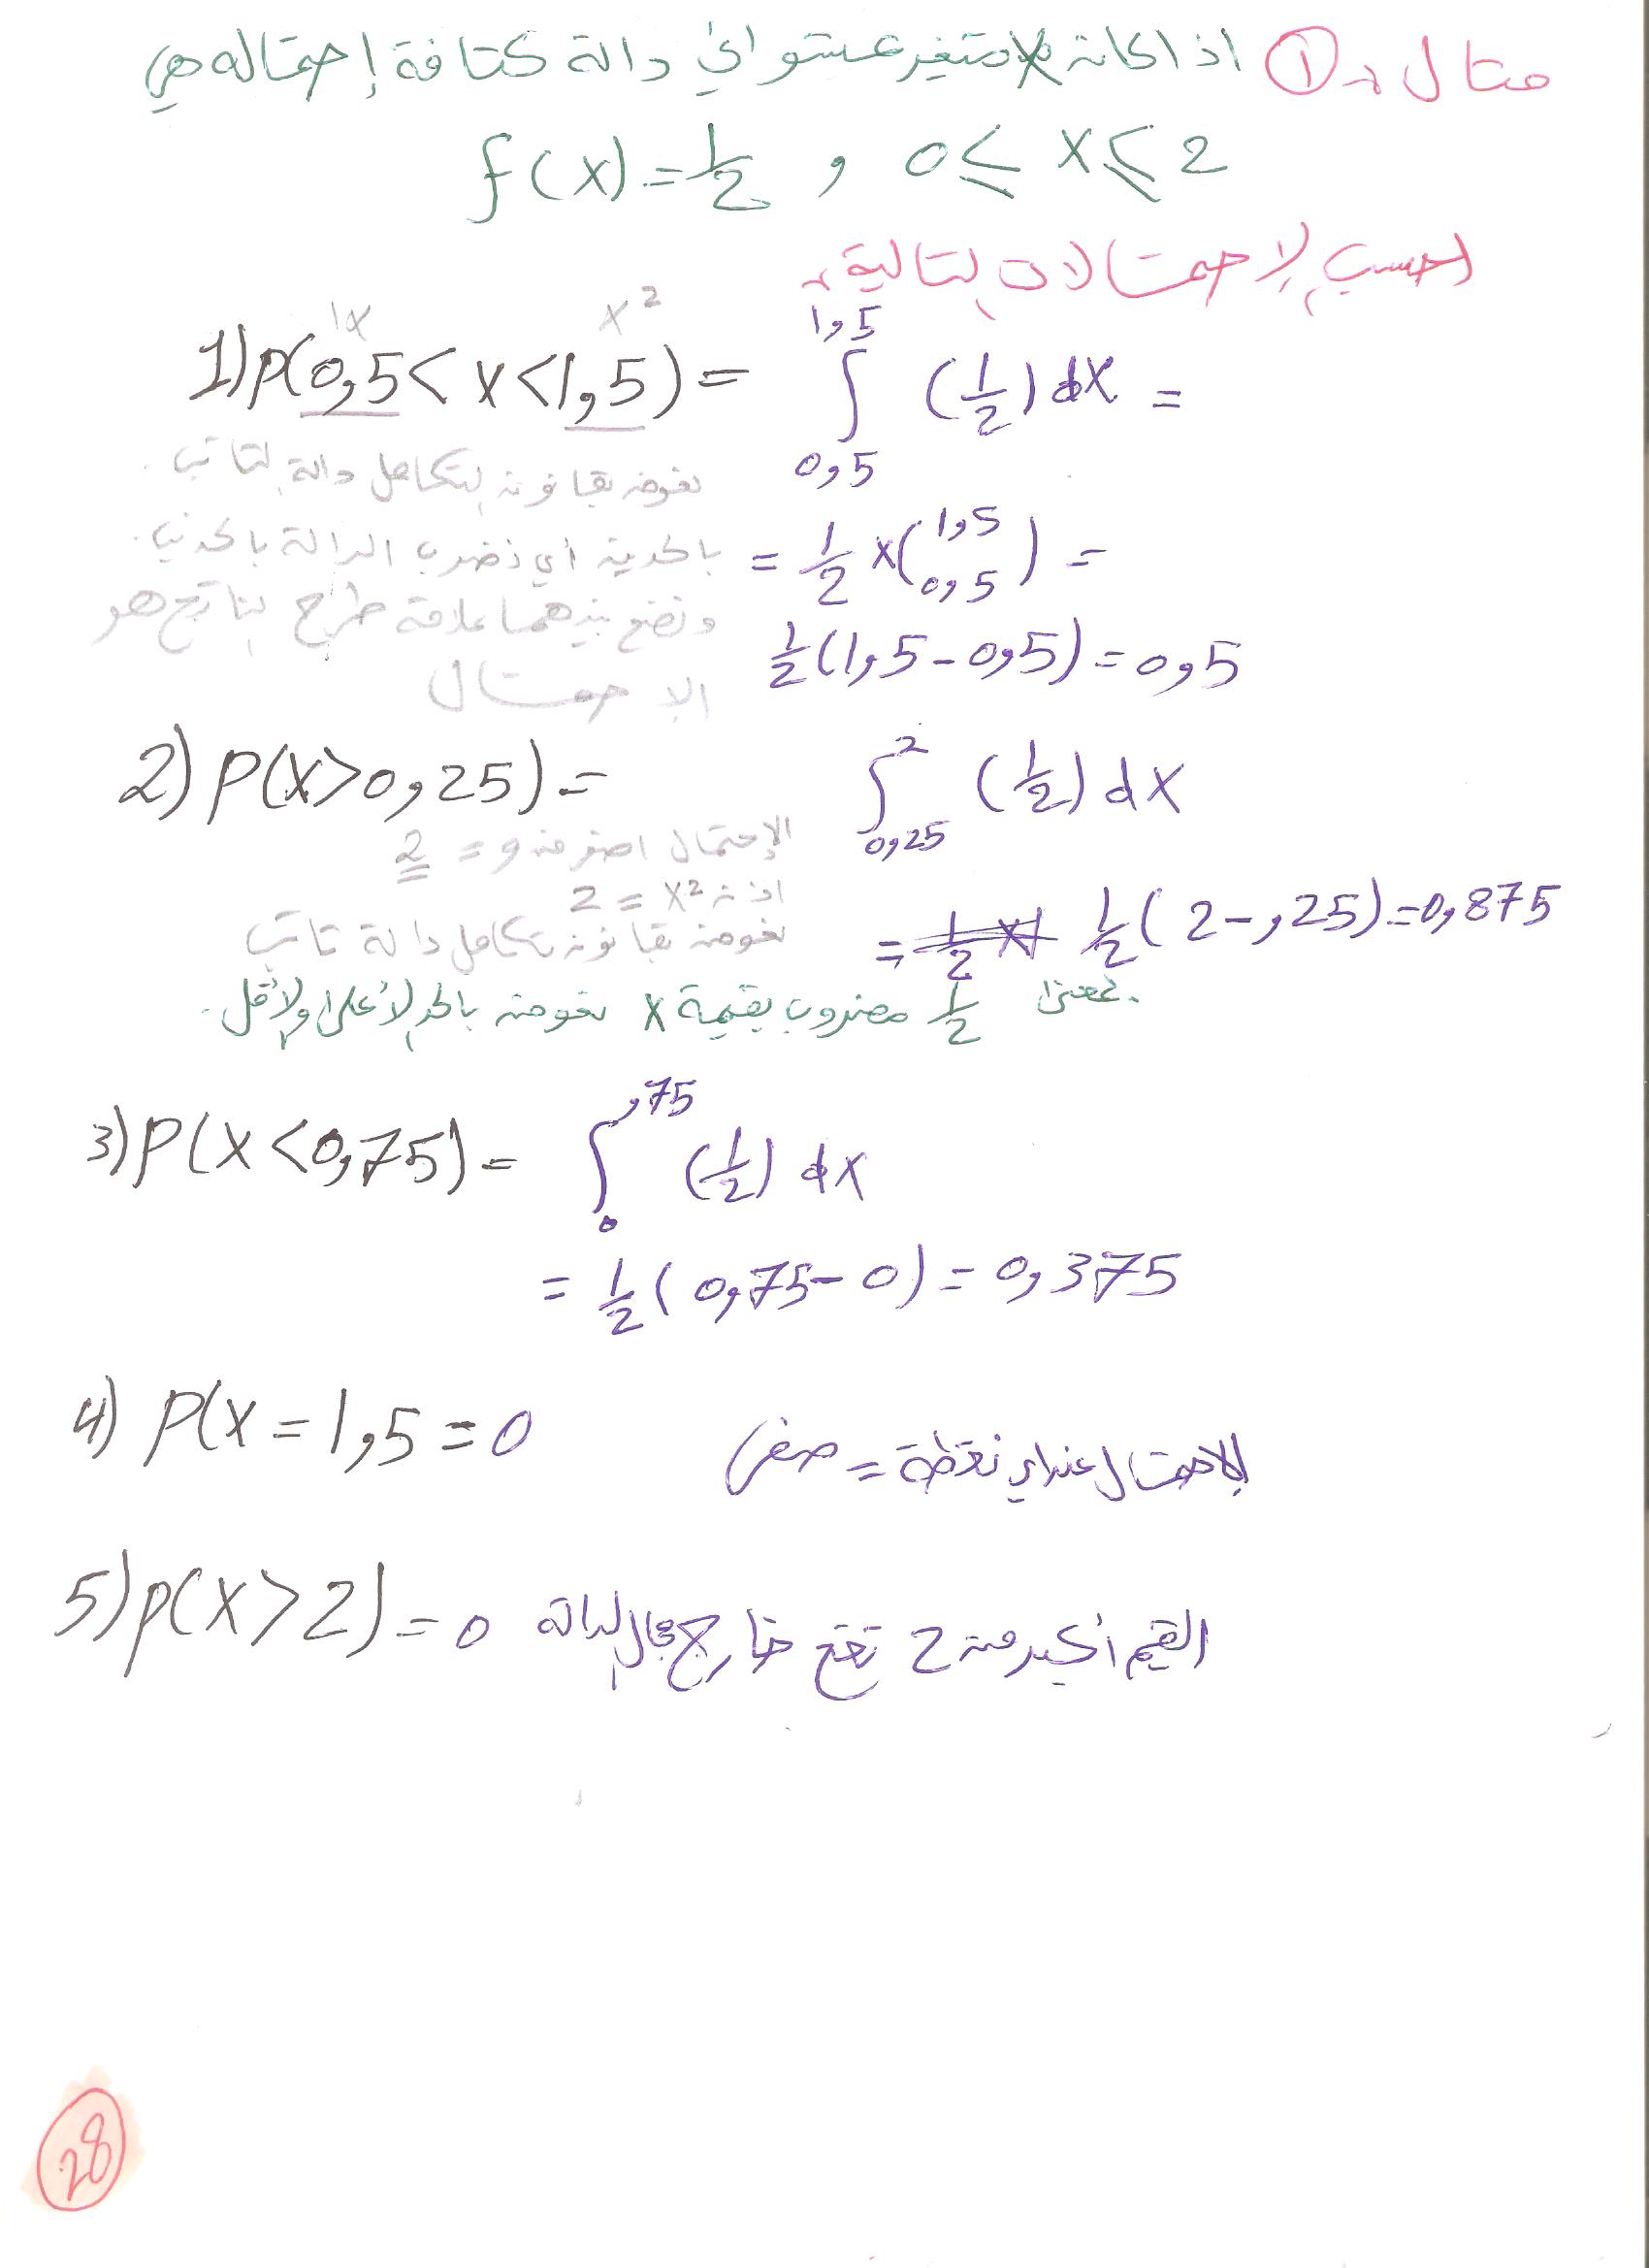 مثال ① : اذا كان X متغير عشوائي دالة كثافة إحتماله هي
f(x) = 1/2 , 0 ≤ x ≤ 2
احسب الاحتمالات التالية :
1x x2
1) p(0,5 < x < 1,5) = ∫ 1,5 0,5 (1/2) dx =
نعوض بقانون التكامل دالة الثابت
بالحدين أي نضرب الدالة بالحدين = 1/2 x( 1,5 0,5 ) =
ونضع بينهما علامة طرح الناتج هو
الاحتمال 1/2 (1,5 - 0,5) = 0,5
2) p(x > 0,25) = ∫ 2 0,25 (1/2) dx
الإحتمال اصغر من و = 2
اذن x2 = 2
نعوض بقانون تكامل دالة ثابت = 1/2 (2 - ,25) = 0,875
بمعنى 1/2 مضروب بقيمة x نعوض بالحد الأعلى والأقل.
3) P(x < 0,75) = ∫ ,75 0 (1/2) dx
= 1/2 (0,75 - 0) = 0,375
4) P(x = 1,5 = 0 الاحتمال عند اي نقطة = صفر
5) p(x > 2) = 0 القيم أكبر من 2 تقع خارج مجال الدالة
28